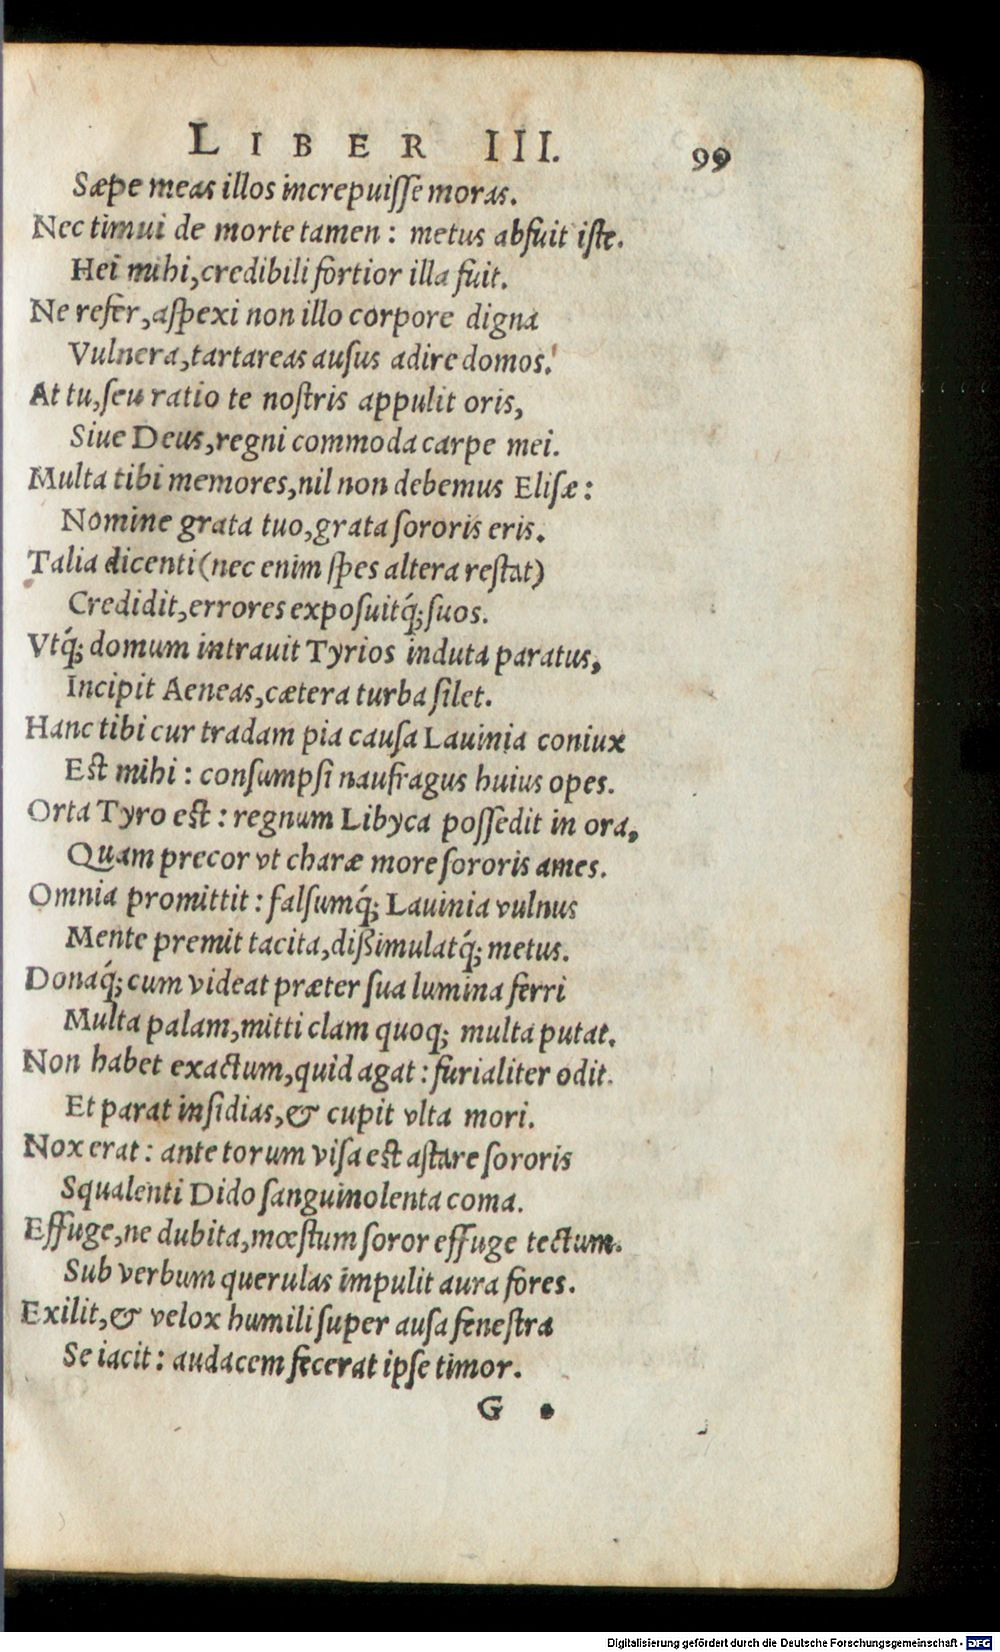 LIBER III. 99
Sæpe meas illos increpuiſſe moras.
Nec timui de morte tamen: metus abfuit iſte.
Hei mihi, credibili fortior illa fuit.
Ne refer, aſpexi non illo corpore digna
Vulnera, tartareas auſus adire domos.
At tu, ſeu ratio te noſtris appulit oris,
Siue Deus, regni commoda carpe mei.
Multa tibi memores, nil non debemus Eliſæ:
Nomine grata tuo, grata ſororis eris.
Talia dicenti (nec enim ſpes altera reſtat)
Credidit, errores expoſuitq́; ſuos.
Vtq́; domum intrauit Tyrios induta paratus,
Incipit Aeneas, cætera turba ſilet.
Hanc tibi cur tradam pia cauſa Lauinia coniux
Eſt mihi: conſumpſi naufragus huius opes.
Orta Tyro eſt: regnum Libyca poſſedit in ora,
Quam precor vt charæ more ſororis ames.
Omnia promittit: falſumq́; Lauinia vulnus
Mente premit tacita, dißimulatq́; metus.
Donaq́; cum videat præter ſua lumina ferri
Multa palam, mitti clam quoq; multa putat.
Non habet exactum, quid agat: furialiter odit.
Et parat inſidias, & cupit vlta mori.
Nox erat: ante torum viſa eſt aſtare ſororis
Squalenti Dido ſanguinolenta coma.
Effuge, ne dubita, mœſtum ſoror effuge tectum.
Sub verbum querulas impulit aura fores.
Exilit, & velox humili ſuper auſa feneſtra
Se iacit: audacem fecerat ipſe timor.
G
Digitalisierung gefördert durch die Deutsche Forschungsgemeinschaft - DFG